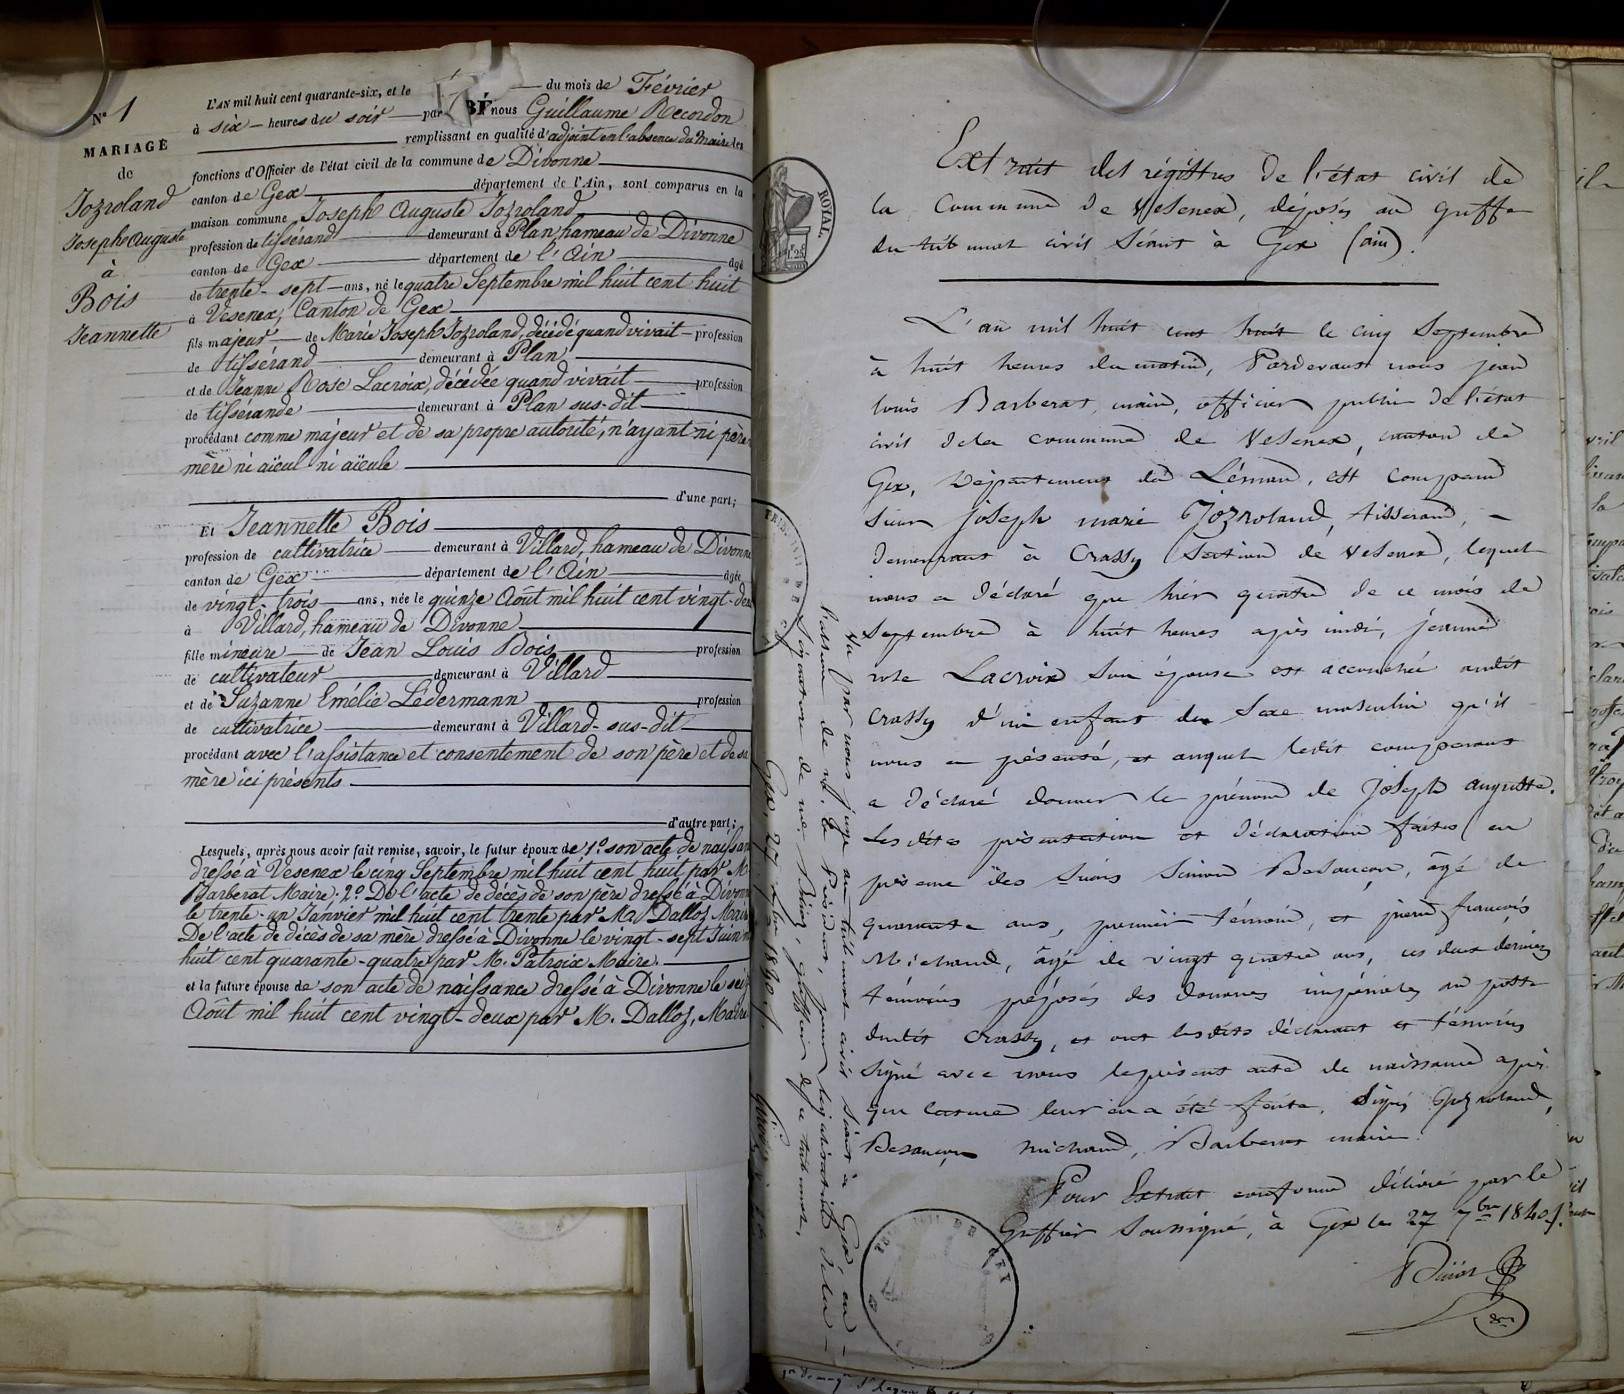 N° 1
MARIAGE
de
Jozroland
Joseph Auguste
à
Bois
Jeannette
L'AN mil huit cent quarante-six, et le du mois de Février
à six heures du soir par nous Guillaume Recordon
remplissant en qualité d'adjoint en l'absence du Maire les
fonctions d'Officier de l'état civil de la commune de Divonne
canton de Gex département de l'Ain, sont comparus en la
maison commune Joseph Auguste Jozroland
profession de tissérand demeurant à Plan hameau de Divonne
canton de Gex département de l'Ain âgé
de trente-sept ans, né le quatre Septembre mil huit cent huit
à Vesenex, Canton de Gex
fils majeur de Marie Joseph Jozroland, décédé quand vivait profession
de tissérand demeurant à Plan
et de Jeanne Rose Lacroix, décédée quand vivait profession
de tissérande demeurant à Plan sus-dit
procédant comme majeur et de sa propre autorité, n'ayant ni père
mère ni aïeul ni aïeule
d'une part;
Et Jeannette Bois
profession de cultivatrice demeurant à Villard, hameau de Divonne
canton de Gex département de l'Ain âgée
de vingt-trois ans, née le quinze Août mil huit cent vingt-deux
à Villard, hameau de Divonne
fille mineure de Jean Louis Bois profession
de cultivateur demeurant à Villard
et de Suzanne Emélie Lédermann profession
de cultivatrice demeurant à Villard-sus-dit
procédant avec l'assistance et consentement de son père et de sa
mère ici présents
d'autre part;
Lesquels, après nous avoir fait remise, savoir, le futur époux de 1° son acte de naissan
dressé à Vesenex le cinq Septembre mil huit cent huit par M.
Barberat Maire; 2° De l'acte de décès de son père dressé à Divonne
le trente-un Janvier mil huit cent trente par M. Dalloz Maire
De l'acte de décès de sa mère dressé à Divonne le vingt-sept Juin m
huit cent quarante-quatre par M. Patroix Maire.
et la future épouse de son acte de naissance dressé à Divonne le seiz
Août mil huit cent vingt-deux par M. Dalloz, Maire
ROYAL
1F 25
Extrait des régistres de l'état civil de
la commune de Vesenex, déposés au greffe
du tribunal civil séant à Gex (ain).
L'an mil huit cent huit le cinq Septembre
à huit heures du matin, Pardevant nous jean
louis Barberat, maire, officier public de l'état
civil de la commune de Vesenex, canton de
Gex, Département du Léman, est comparu
Sieur joseph marie Jozroland, tisserand,
demeurant à Crassy section de Vesenex, lequel
nous a déclaré que hier quatre de ce mois de
Septembre à huit heures après midi, jeanne
rose Lacroix son épouse est accouchée audit
Crassy d'un enfant du sexe masculin qu'il
nous a présenté, et auquel ledit comparant
a déclaré donner le prénom de joseph auguste.
Lesdites présentation et déclaration faites en
présence des Sieurs Simon Besançon, âgé de
quarante ans, premier témoin, et pierre françois
Michaud, âgé de vingt quatre ans, ces deux derniers
témoins préposés des douanes impériales au poste
dudit Crassy, et ont lesdits déclarant et témoins
signé avec nous le présent acte de naissance après
que lecture leur en a été faite. Signé Jozroland,
Besançon Michaud, Barberat maire.
Pour Extrait conforme délivré par le
Greffier soussigné, à Gex le 27 7bre 1840.
Vu par nous juge au tribunal civil séant à Gex en
l'absence de M. le Président, pour légalisation de la
signature de Me greffier de ce tribunal,
Gex, 27 7bre 1840.